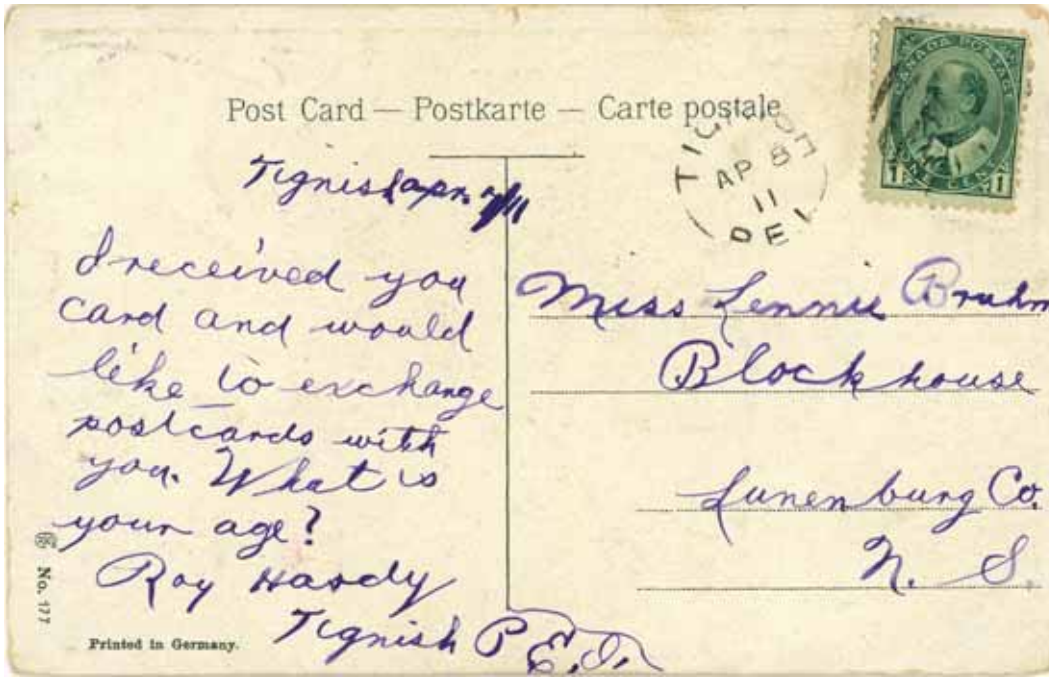 Post Card — Postkarte — Carte postale
CANADA POSTAGE
1 ONE CENT 1
AP 8
11
P E I
Tignish apr. 7/11
I received you
card and would
like to exchange
postcards with
you. What is
your age?
Roy Hardy
Tignish P E.I.
Miss Lennie Bruhm
Blockhouse
Lunenburg Co.
N. S.
No. 177
Printed in Germany.